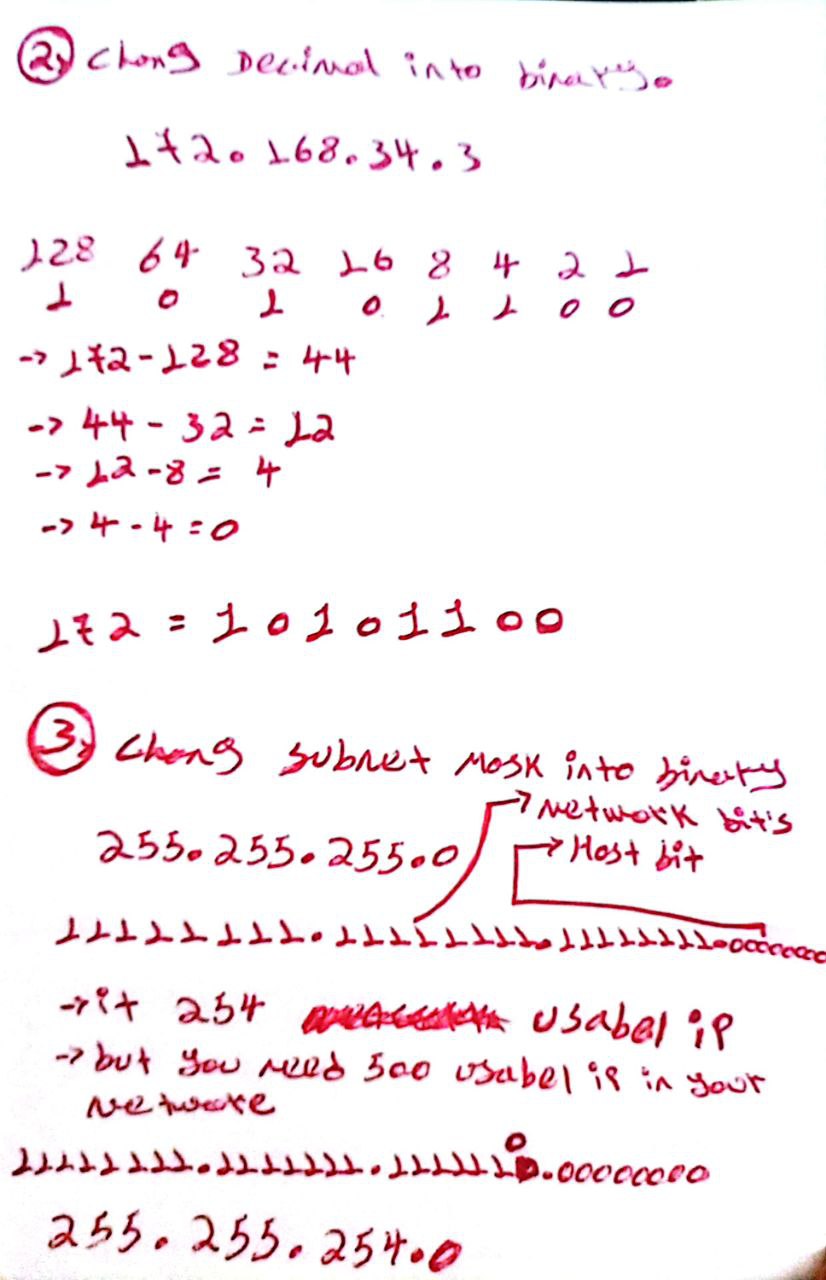 2, Chang Decimal into binary.
172.168.34.3
128 64 32 16 8 4 2 1
1 0 1 0 1 1 0 0
-> 172-128 = 44
-> 44 - 32 = 12
-> 12-8 = 4
-> 4-4=0
172 = 10101100
3, Chang subnet Mask into binary
-> Network bit's
255.255.255.0
-> Host bit
11111111.11111111.11111111.00000000
-> it 254 usabel ip
-> but you need 500 usabel ip in your
Networke
11111111.11111111.11111110.00000000
255.255.254.0